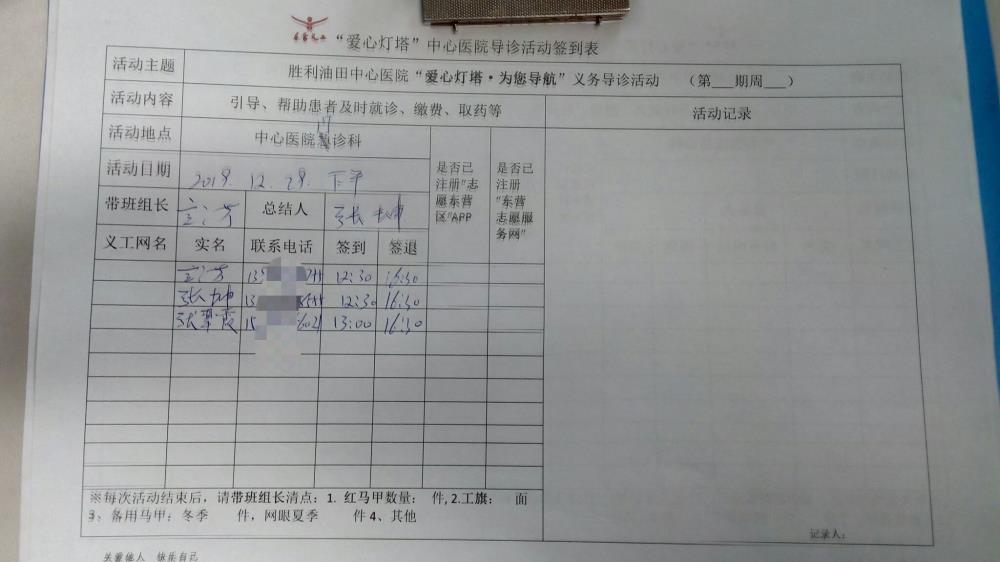 “爱心灯塔”中心医院导诊活动签到表
活动主题 胜利油田中心医院“爱心灯塔·为您导航”义务导诊活动 （第___期周___）
活动内容 引导、帮助患者及时就诊、缴费、取药等 活动记录
活动地点 中心医院 门诊科
活动日期 2019. 12. 29. 下午
是否已注册“志愿东营区”APP
是否已注册“东营志愿服务网”
带班组长 总结人 张坤
义工网名 实名 联系电话 签到 签退
12:30 16:30
张坤 12:30 16:30
张翠霞 13:00 16:30
※每次活动结束后，请带班组长清点：1. 红马甲数量： 件, 2.工旗： 面
3、备用马甲：冬季 件，网眼夏季 件 4、其他
记录人：
关爱他人 快乐自己